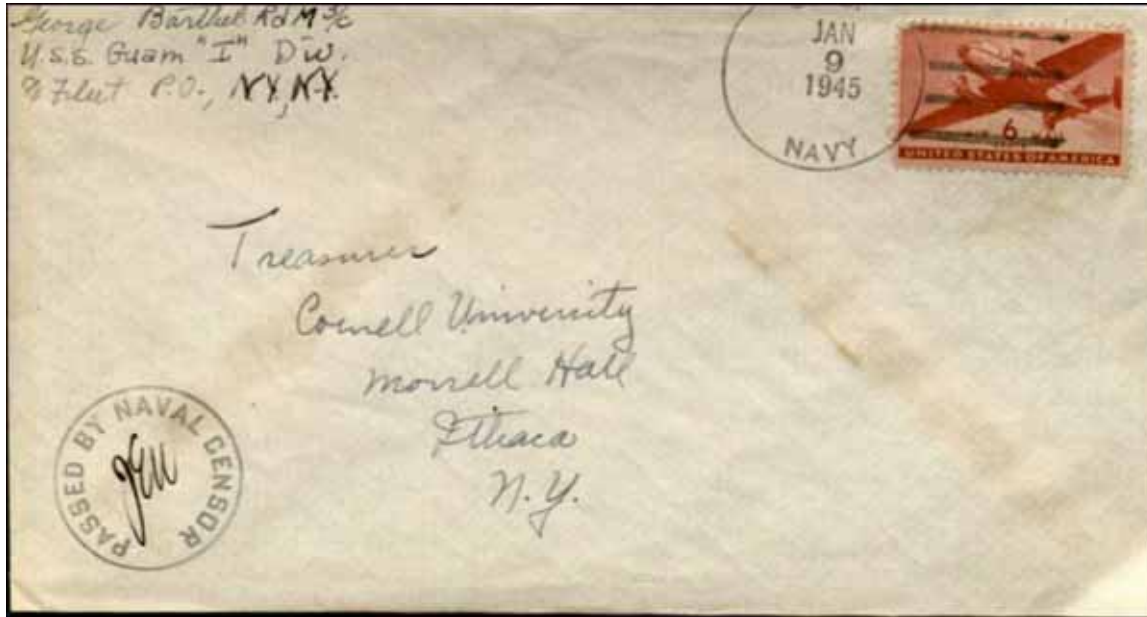 George Barthel RdM 3/c
U.S.S. Guam "I" Div.
% Fleet P.O., NY, N.Y.
JAN
9
1945
NAVY
6
UNITED STATES OF AMERICA
Treasurer
Cornell University
Morrell Hall
Ithaca
N.Y.
PASSED BY NAVAL CENSOR